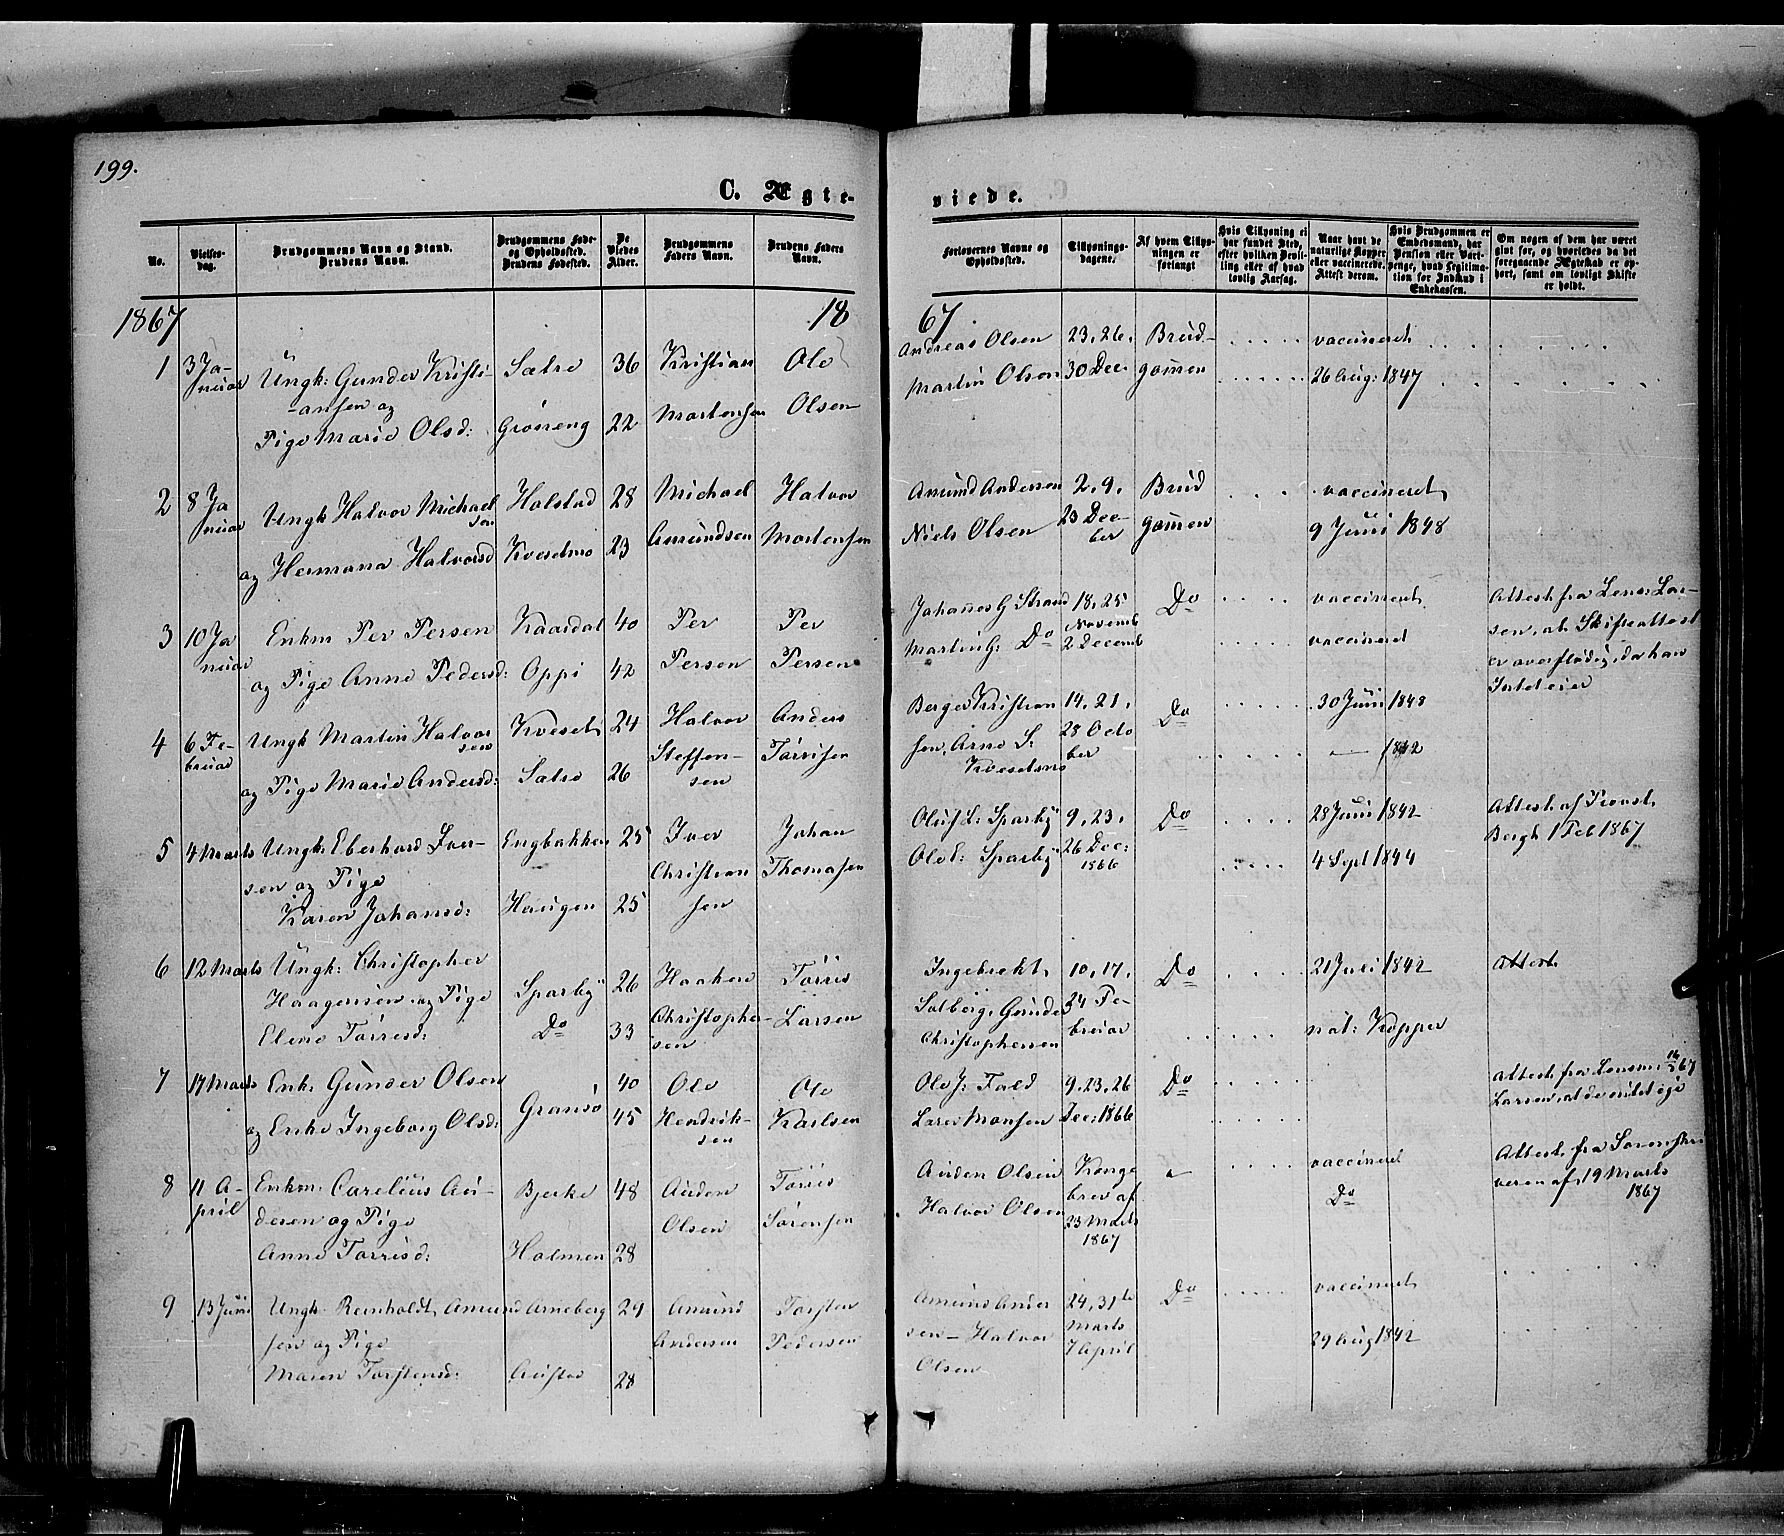 199.
C. Ægte-
viede.
No.
Vielses-
dag.
Brudgommens Navn og Stand.
Brudens Navn.
Brudgommens Føde-
og Opholdssted.
Brudens Fødested.
De
Viedes
Alder.
Brudgommens
Faders Navn.
Brudens Faders
Navn.
Forlovernes Navne og
Opholdssted.
Tillysnings-
dagene.
Af hvem Tillys-
ningen er
forlangt
Hvis Tillysning ei
har fundet Sted,
efter hvilken Bevil-
ling eller af hvad
lovlig Aarsag.
Naar havt de
naturlige Kopper
eller vaccinerede.
Attest derom.
Hvis Brudgommen er
Embedsmand, har
Pension eller Vart-
penge, hvad Legitima-
tion for Indskud i
Enkekassen.
Om nogen af dem har været
gift før, og hvorledes da det
foregaaende Ægteskab er op-
hørt, samt om lovligt Skifte
er holdt.
1867
18
67
1 3 Ja-
nuar
Ungk: Gunder Kristi-
ansen og
Pige Marie Olsd:
Sætre
Grøneng
36
22
Kristian
Martensen
Ole
Olsen
Andreas Olsen
Martin Olsen
23, 26,
30 Dec.
Brud-
gomen
vaccineret
26 Aug: 1847
2 8 Ja
nuar
Ungk Halvor Michael
sen
og Hermana Halvorsd
Halstad
Kvesetmo
28
23
Michael
Amundsen
Halvor
Martensen
Amund Andersen
Niels Olsen
2, 9,
23 Dec-
ber
Brud
gomen
vaccineret
9 Juni 1848
3 10 Ja
nuar
Enkm Per Persen
og Pige Anne Pedersd:
Kaardal
Oppi
40
42
Per
Persen
Per
Persen
Johanes G Strand
Martin G: Do
18, 25
Novemb
2 Decemb
Do
vaccineret
vaccineret
Attest fra Lens: Lar-
sen, at Skifteattest
er overflødig, da han
Intet eier
4 6 Fe-
bruar
Ungk Martin Halvor
sen
og Pige Marie Andersd:
Kveset
Sætre
24
26
Halvor
Steffen-
sen
Anders
Torrisen
Berger Kristian
sen, Arne S:
Kvesetmo
14, 21,
28 Octo
ber
Do
30 Juni 1848
— 1842
5 4 Marts
Ungk: Eberhard Iver-
sen og Pige
Karen Johansd:
Engbakken
Haugen
25
25
Iver
Christian
sen
Johan
Thomasen
Oluf L: Sparby
Ole E: Sparby
9, 23,
26 Dec:
1866
Do
28 Juni 1842
4 Sept 1844
Attest af Provst
Bergh 1 Feb 1867
6 12 Marts
Ungk: Christopher
Haagensen og Pige
Eline Torresd:
Sparby
Do
26
33
Haaken
Christopher-
sen
Torris
Larsen
Ingebrekt
Solberg, Gunder
Christophersen
10, 17,
24 Fe-
bruar
Do
21 Juli 1842
nat: Kopper
Attest
7 17 Marts
Enk: Gunder Olsen
og Enke Ingeborg Olsd:
Gransø
40
45
Ole
Hendrik-
sen
Ole
Karlsen
Ole J: Fald
Lars Monsen
9, 23, 26
Dec: 1866
Do
Attest fra Lensm:
Larsen, at de intet eje
8 11 A-
pril
Enkm: Carelius Au-
densen og Pige
Anne Torrisd:
Bjerke
Holmen
48
28
Auden
Olsen
Torris
Sørensen
Auden Olsen
Halvor Olsen
Konge
brev af
23 Marts
1867
vaccineret
Do
Attest fra Sorenskri
veren af 19 Marts
1867
9 13 Juni
Ungk. Reinholdt Amund
sen og Pige
Maren Torstensd:
Arneberg
Austad
24
28
Amund
Andersen
Torsten
Pedersen
Amund Ander
sen – Halvor
Olsen
24, 31te
Marts
7 April
Do
vaccineret
29 Aug 1842